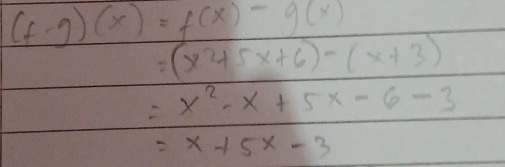 (f-g)(x) = f(x) - g(x)
= (x²+5x+6) - (x+3)
= x² - x + 5x - 6 - 3
= x + 5x - 3